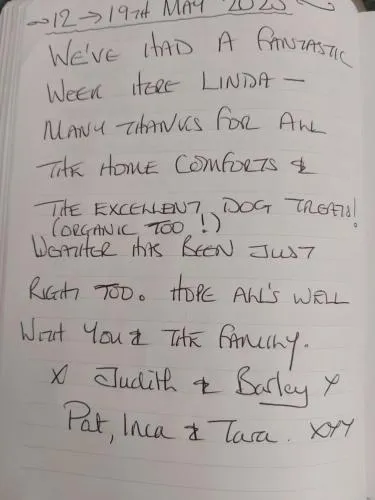 →12 → 19TH MAY 2023
WE'VE HAD A FANTASTIC
WEEK HERE LINDA —
MANY THANKS FOR ALL
THE HOME COMFORTS &
THE EXCELLENT DOG TREATS!
(ORGANIC TOO!)
WEATHER HAS BEEN JUST
RIGHT TOO. HOPE ALL'S WELL
WITH YOU & THE FAMILY.
X Judith & Barley X
Pat, Inca & Tara. XXX